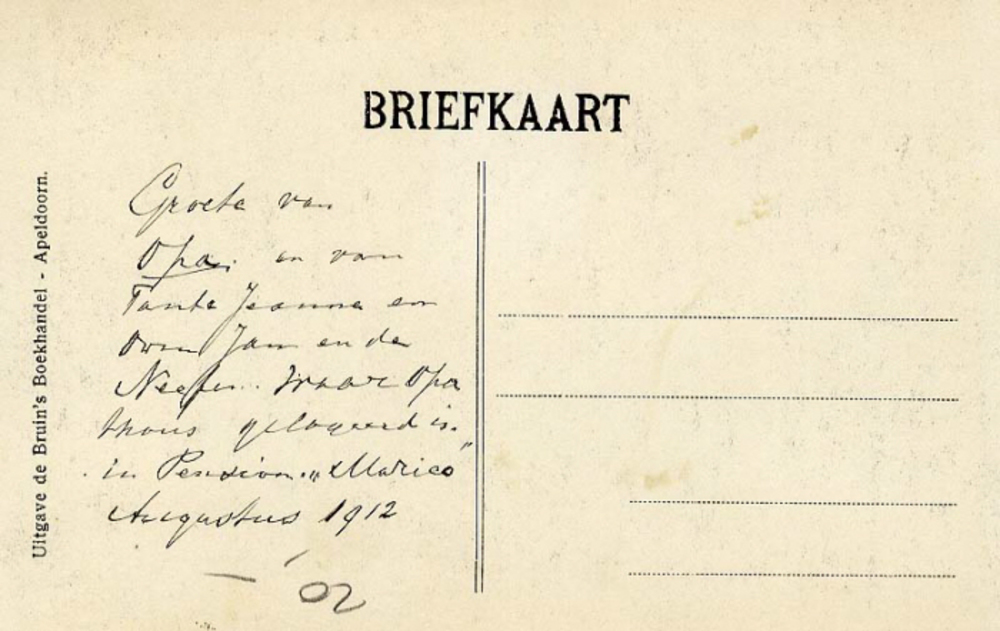 BRIEFKAART
Uitgave de Bruin's Boekhandel - Apeldoorn.
Groete van
Opa. en van
Tante Jeanne en
Oom Jan en de
Neefen. waar Opa
thans gelogeerd is.
in Pension „Marico"
Augustus 1912